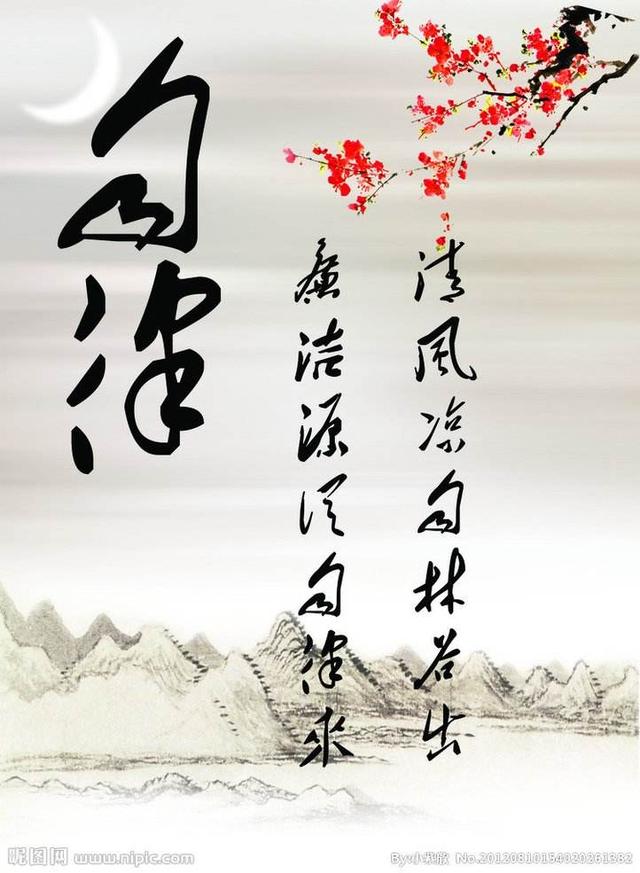 自律
清風凉自林谷出
廉洁源從自律來
昵图网 www.nipic.com
No.20120810154020261382